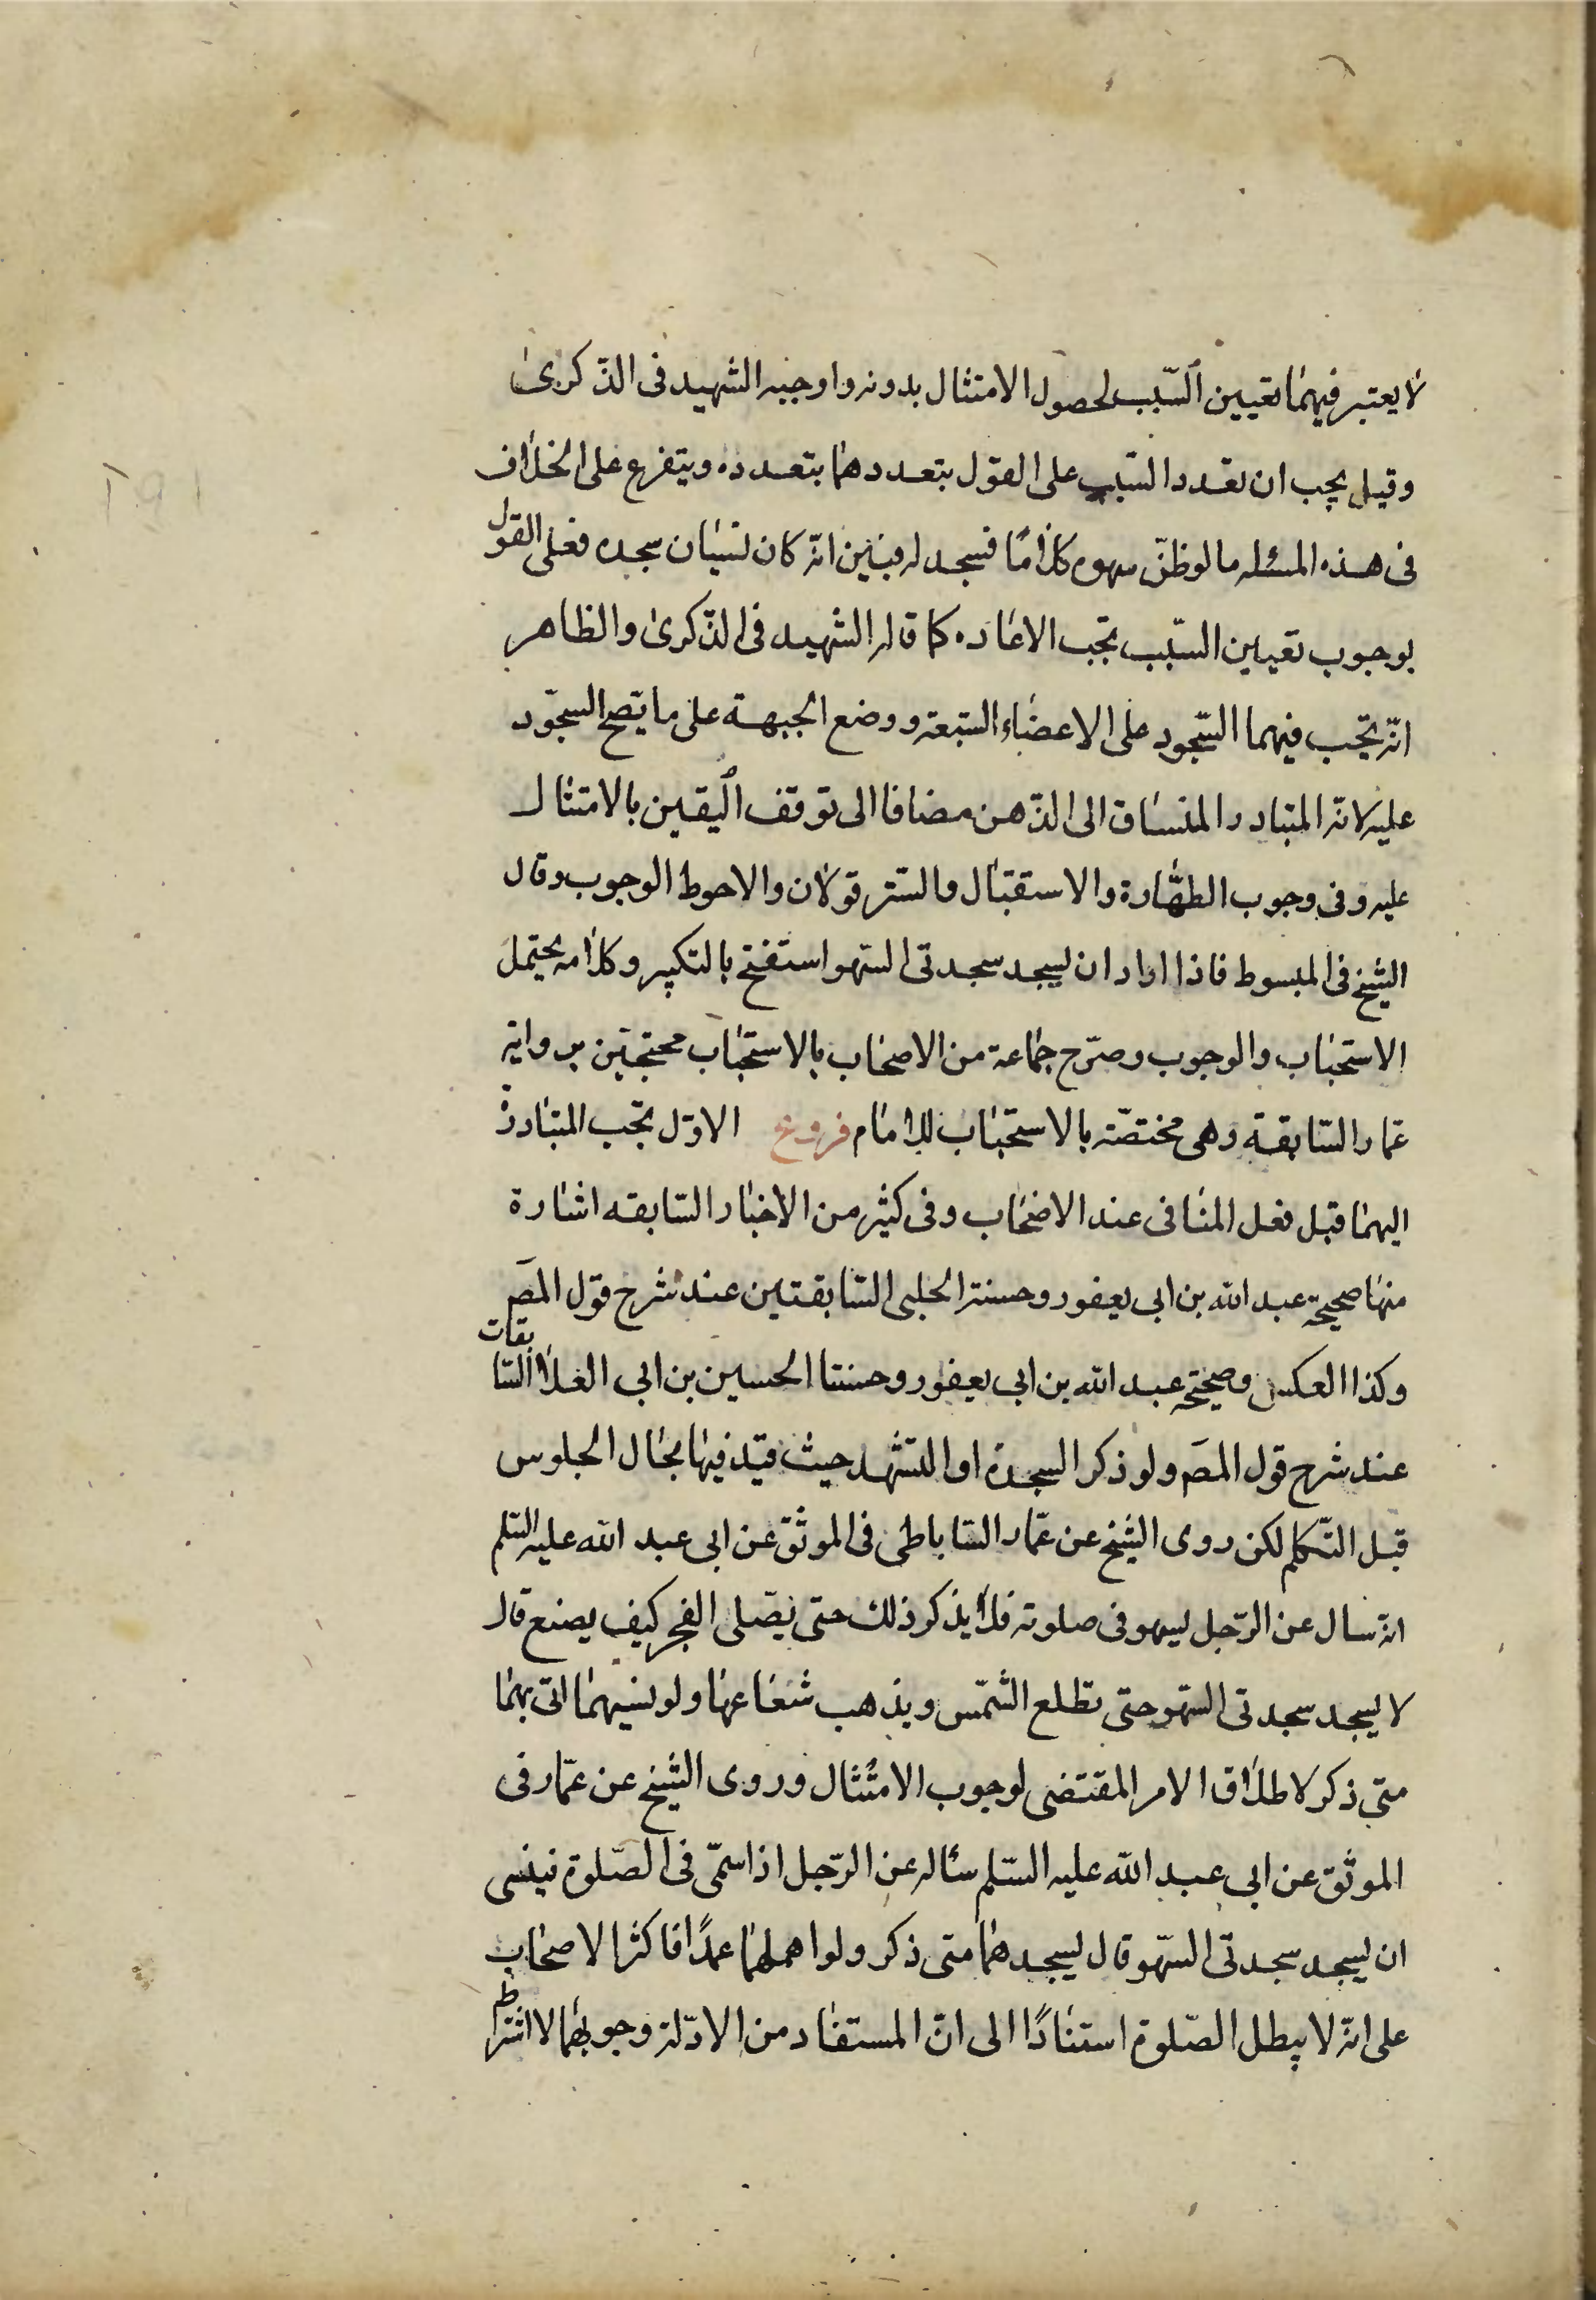 لا يعتبر فيهما تعيين السّبب لحصول الامتثال بدونه واوجبه الشهيد فى الذّكرى
وقيل يجب ان تعدد السّبب على القول بتعددهما بتعدده ويتفرع على الخلاف
فى هذه المسئله ما لو ظنّ سهوه كلامًا فسجد له فتبيّن انّه كان لنسيان سجده فعلى القول
بوجوب تعيين السّبب تجب الاعاده كما قاله الشهيد فى الذّكرى والظاهر
انّه يجب فيهما السّجود على الاعضاء السّبعة ووضع الجبهة على ما يصح السجّود
عليه لانّه المتبادر المنساق الى الذّهن مضافا الى توقف اليقين بالامتثال
عليه وفى وجوب الطهّارة والاستقبال والسّتر قولان والاحوط الوجوب وقال
الشيخ فى المبسوط فاذا اراد ان يسجد سجدتى السّهو استفتح بالتكبير وكلامه يحتمل
الاستحباب والوجوب وصرّح جماعة من الاصحاب بالاستحباب محتجّين برواية
عمار السّابقة وهى مختصّه بالاستحباب للامام فروع الاوّل تجب المبادرة
اليهما قبل فعل المنافى عند الاصحاب وفى كثير من الاخبار السّابقه اشارة
منها صحيحة عبد الله بن ابى يعفور وحسنة الحلبى السّابقتين عند شرح قول المص
وكذا العكس وصحيحة عبد الله بن ابى يعفور وحسنتا الحسين بن ابى العلا السّابقات
عند شرح قول المص ولو ذكر السجدة او التشّهد حيث قيّد فيها بحال الجلوس
قبل التّكلم لكن روى الشيخ عن عمّار السّاباطى فى الموثق عن ابى عبد الله عليه السّلم
انه سال عن الرّجل يسهو فى صلوته فلا يذكر ذلك حتى يصّلى الفجر كيف يصنع قال
لا يسجد سجدتى السّهو حتى تطلع الشّمس ويذهب شعاعها ولو نسيهما اتى بهما
متى ذكر لاطلاق الامر المقتضى لوجوب الامتثال وروى الشيخ عن عمّار فى
الموثق عن ابى عبد الله عليه السّلم سئاله عن الرّجل اذا سهّى فى الصّلوة فينسى
ان يسجد سجدتى السّهو قال يسجدهما متى ذكر ولو اهملهما عمدًا فاكثر الاصحاب
على انّه لا يبطل الصّلوة استنادًا الى انّ المستفاد من الادّلة وجوبهما لا اشتراط